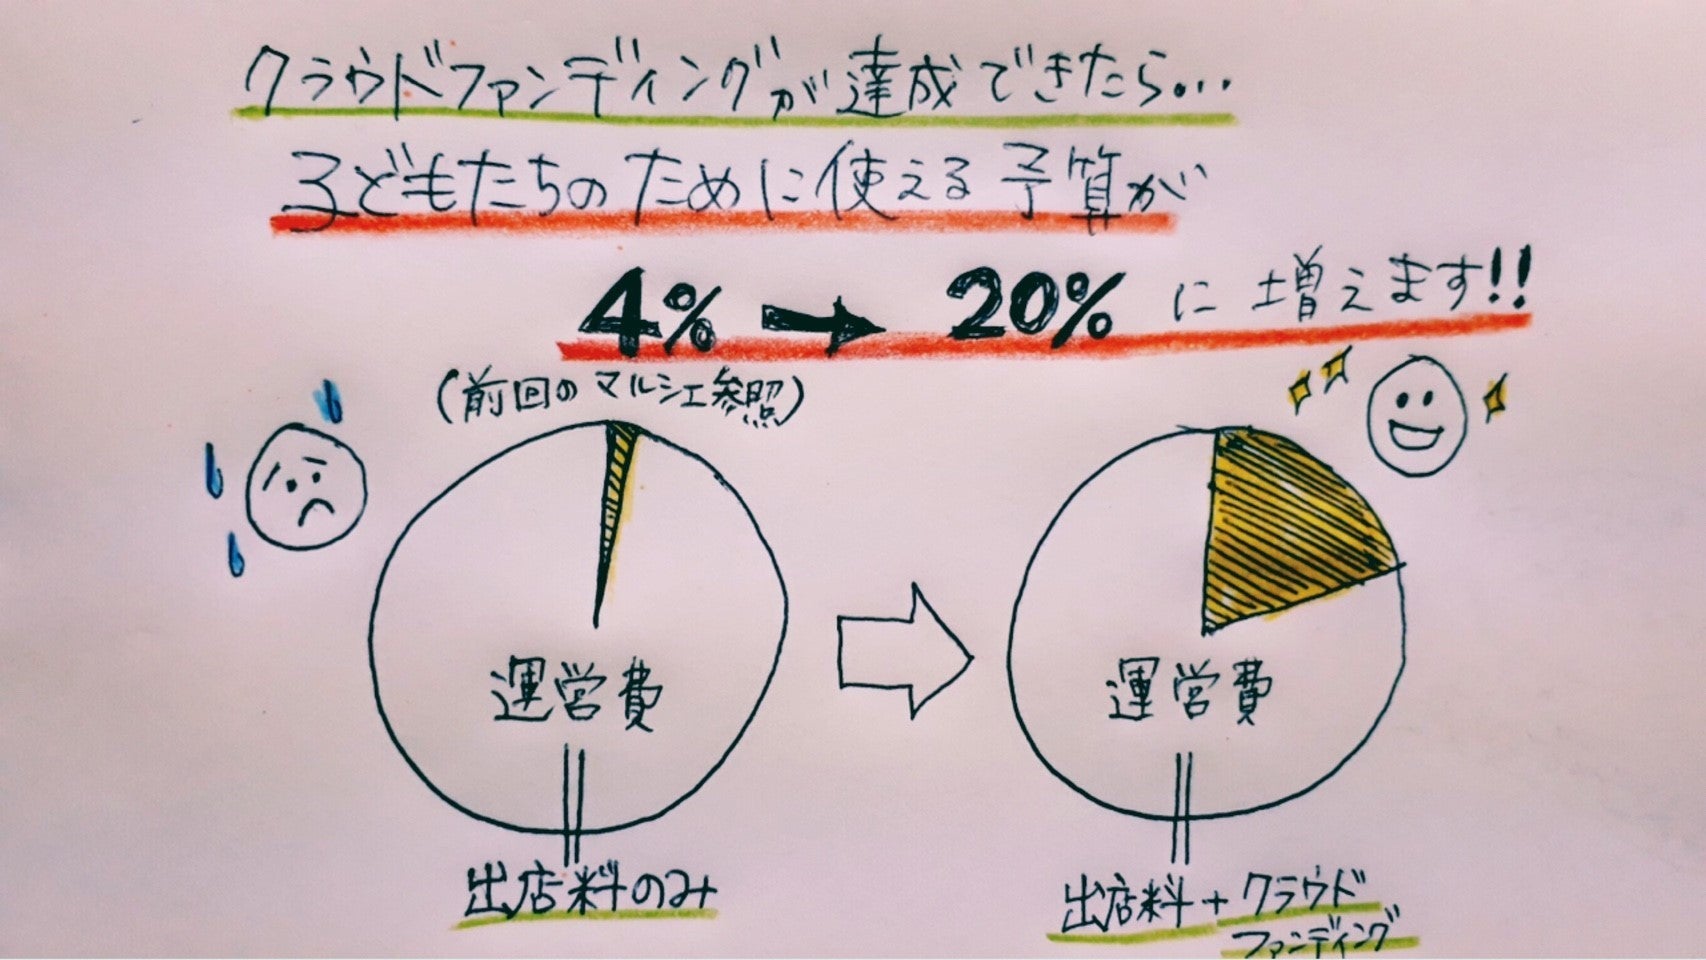 クラウドファンディングが達成できたら...
子どもたちのために使える予算が
4% → 20% に増えます!!
(前回のマルシェ参照)
運営費
運営費
出店料のみ
出店料+クラウド
ファンディング